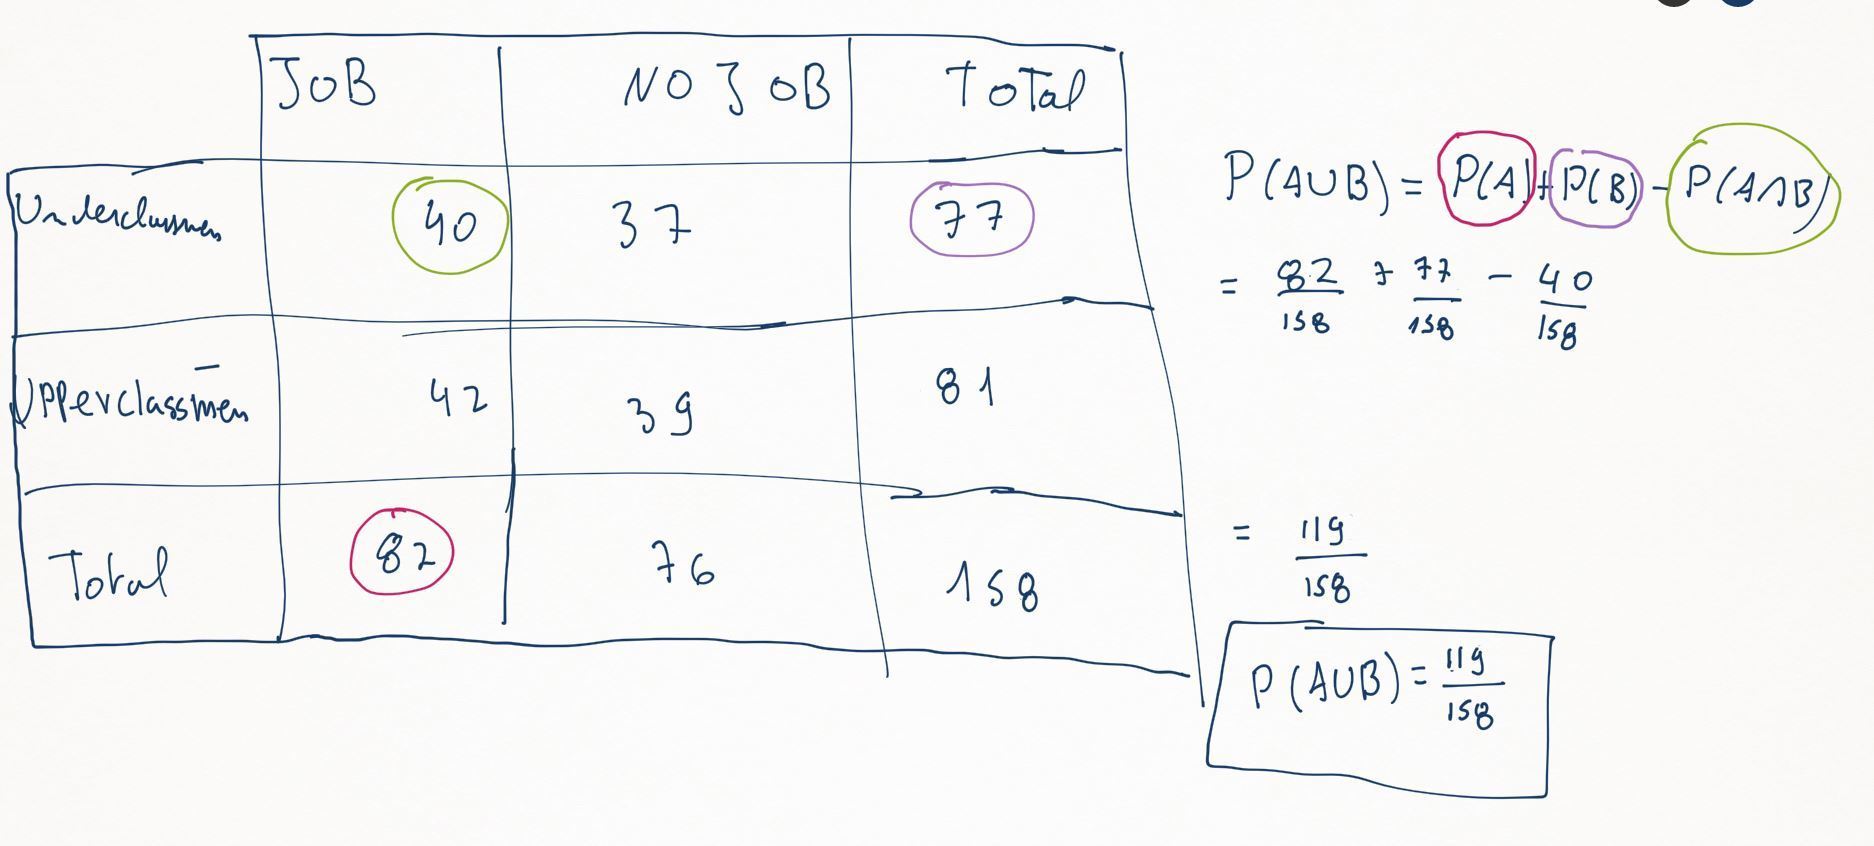 JOB NO JOB Total
Underclassmen 40 37 77
Upperclassmen 42 39 81
Total 82 76 158
P(A∪B) = P(A) + P(B) - P(A∩B)
= 82/158 + 77/158 - 40/158
= 119/158
P(A∪B) = 119/158